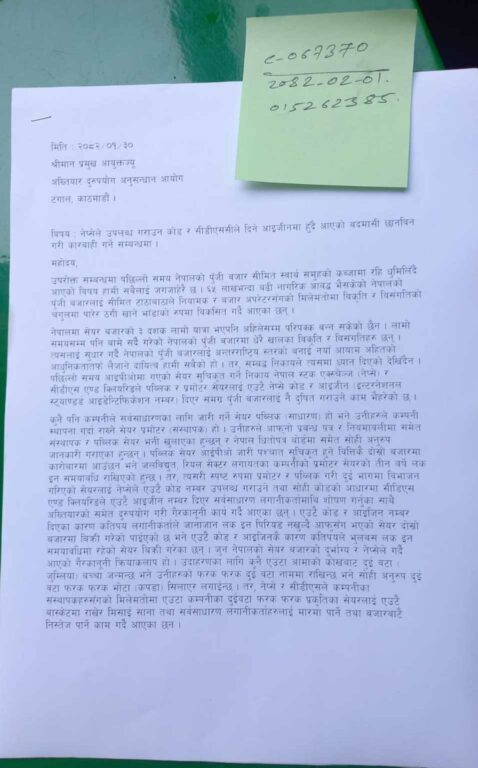 c-067370
2082-02-01.
015262385.
मिति : २०८२/०१/३०
श्रीमान प्रमुख आयुक्तज्यू
अख्तियार दुरुपयोग अनुसन्धान आयोग
टंगाल, काठमाडौं ।
विषय : नेप्सेले उपलब्ध गराउन कोड र सीडीएससीले दिने आइजीनमा हुदै आएको बदमासी छानविन
गरी कारवाही गर्ने सम्बन्धमा ।
महोदय,
उपरोक्त सम्बन्धमा पछिल्लो समय नेपालको पुंजी बजार सीमित स्वार्थ समुहको कब्जामा रहि धुमिलिँदै
आएको विषय हामी सबैलाई जगजाहेरै छ । ६५ लाखभन्दा बढी नागरिक आवद्ध भैसकेको नेपालको
पुंजी बजारलाई सीमित टाठाबाठाले नियामक र बजार अपरेटरसंगको मिलेमतोमा विकृति र विसंगतिको
चंगुलमा पारेर ठगी खाने भाँडाको रुपमा विकसित गर्दै आएका छन् ।
नेपालमा सेयर बजारको ३ दशक लामो यात्रा भएपनि अहिलेसम्म परिपक्क बन्न सकेको छैन । लामो
समयसम्म पनि बामे सर्दै गरेको नेपालको पुंजी बजारमा धेरै खालका विकृति र विसंगतिहरु छन् ।
त्यसलाई सुधार गर्दै नेपालको पुंजी बजारलाई अन्तरराष्ट्रिय स्तरको बनाई नयां आयाम अहितको
आधुनिकतातर्फ लैजाने दायित्व हामी सबैको हो । तर, सम्बद्ध निकायले त्यसमा ध्यान दिएको देखिँदैन ।
पछिल्लो समय आइपीओमा गएको सेयर सुचिकृत गर्ने निकाय नेपाल स्टक एक्स्चेञ्ज (नेप्से) र
सीडीएस एण्ड क्लियरिङले पब्लिक र प्रमोटर सेयरलाई एउटै नेप्से कोड र आइजीन (इन्टरनेशनल
स्ट्याण्डर्ड आइडेन्टिफिकेशन नम्बर) दिएर समग्र पुंजी बजारलाई नै दुषित गराउने काम भैरहेको छ ।
कुनै पनि कम्पनीले सर्वसाधारणका लागि जारी गर्ने सेयर पब्लिक (साधारण) हो भने उनीहरुले कम्पनी
स्थापना गर्दा राख्ने सेयर प्रमोटर (संस्थापक) हो । उनीहरुले आफनो प्रबन्ध पत्र र नियमावलीमा समेत
संस्थापक र पब्लिक सेयर भनी खुलाएका हुन्छन् र नेपाल धितोपत्र वोर्डमा समेत सोही अनुरुप
जानकारी गराएका हुन्छन् । पब्लिक सेयर आईपीओ जारी पश्चात् सुचिकृत हुने वित्तिकै दोस्रो बजारमा
कारोबारमा आउंछन भने जलविद्युत, रियल सेक्टर लगायतका कम्पनीको प्रमोटर सेयरको तीन वर्ष लक
इन समयावधि राखिएको हुन्छ । तर, त्यसरी स्पष्ट रुपमा प्रमोटर र पब्लिक गरी दुई भागमा विभाजन
गरिएको सेयरलाई नेप्सेले एउटै कोड नम्बर उपलब्ध गराउने तथा सोही कोडको आधारमा सीडिएस
एण्ड क्लियरिङले एउटै आइजिन नम्बर दिएर सर्वसाधारण लगानीकर्तामाथि शोषण गर्नुका साथै
अख्तियारको समेत दुरुपयोग गरी गैरकानुनी कार्य गर्दै आएका छन् । एउटै कोड र आइजिन नम्बर
दिएका कारण कतिपय लगानीकर्ताले जानाजान लक इन पिरियड नखुल्दै आफुसंग भएको सेयर दोस्रो
बजारमा बिक्री गरेको पाइएको छ भने एउटै कोड र आइजिनकै कारण कतिपयले भुलबस लक इन
समयावधिमा रहेको सेयर बिक्री गरेका छन् । जुन नेपालको सेयर बजारको दुर्भाग्य र नेप्सेले गर्दै
आएको गैरकानुनी क्रियाकलाप हो । उदाहरणका लागि कुनै एउटा आमाको कोखबाट दुई वटा
(जुम्लिया) बच्चा जन्मन्छ भने उनीहरुको फरक फरक दुई वटा नाममा राखिन्छ भने सोही अनुरुप दुई
वटा फरक फरक भोटो (कपडा) सिलाएर लगाइन्छ । तर, नेप्से र सीडीएसले कम्पनीका
संस्थापकहरुसंगको मिलेमतोमा एउटा कम्पनीका दुईवटा फरक फरक प्रकृतिका सेयरलाई एउटै
बास्केटमा राखेर मिसाई साना तथा सर्वसाधारण लगानीकर्ताहरुलाई मारमा पार्ने तथा बजारबाटै
निस्तेज पार्ने काम गर्दै आएका छन् ।